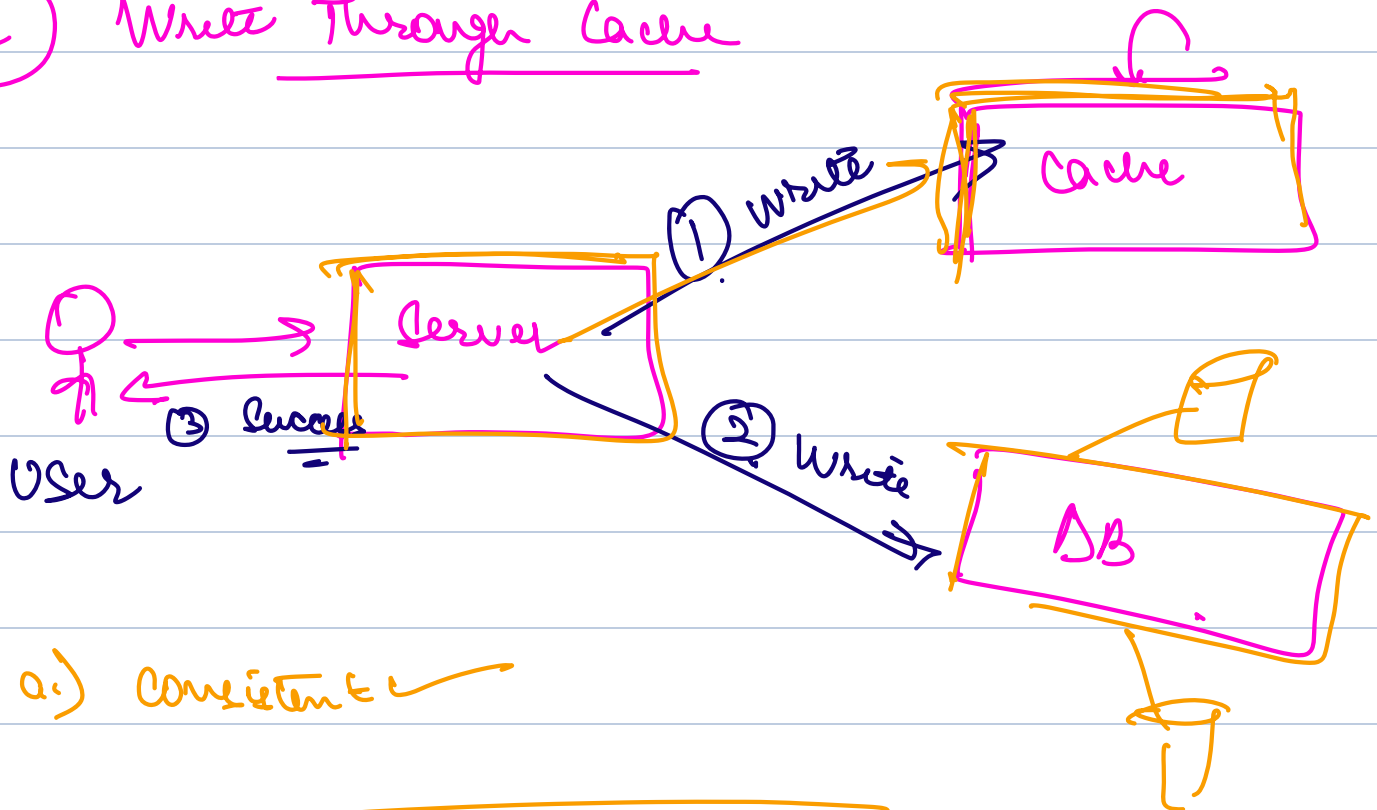 ) Write Through Cache
Cache
① Write
Server
③ Success
User
② Write
DB
a.) Consistent